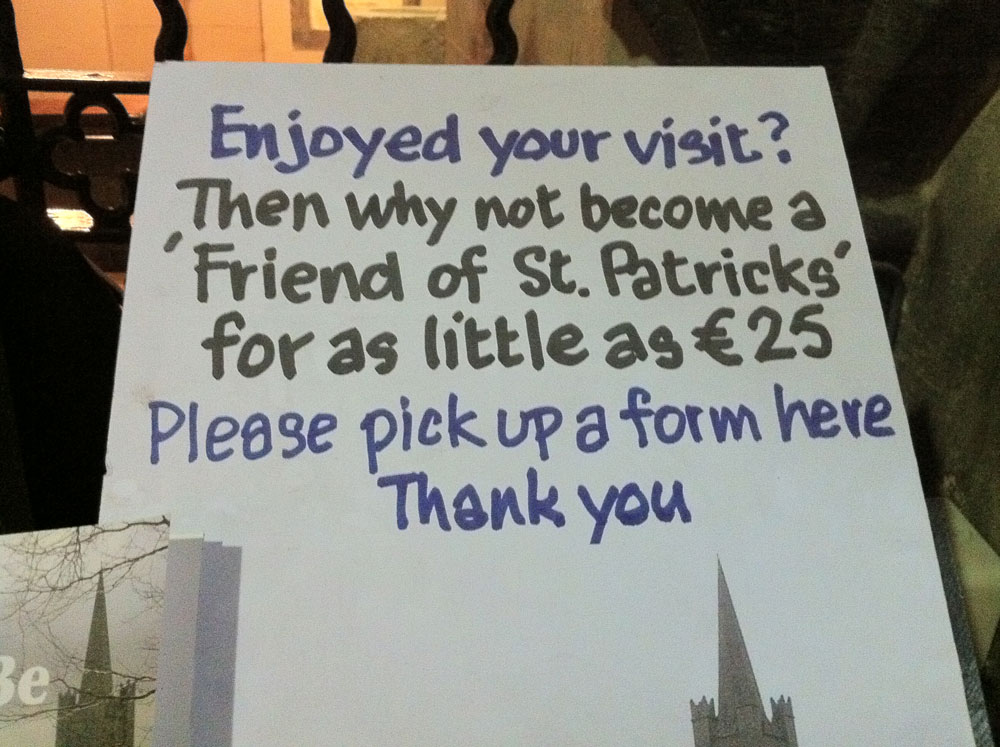 Enjoyed your visit?
Then why not become a
'Friend of St. Patricks'
for as little as €25
Please pick up a form here
Thank you
Be